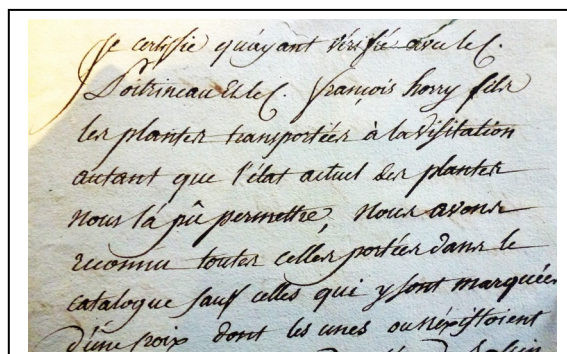 Je certifie qu'ayant vérifié avec le C.
Poitrineau et le C. françois horry fils
les plantes transportées à la visitation
autant que l'état actuel des plantes
nous l'a pû permettre, nous avons
reconnu toutes celles portées dans le
catalogue sauf celles qui y sont marquées
d'une croix dont les unes ou n'existoient